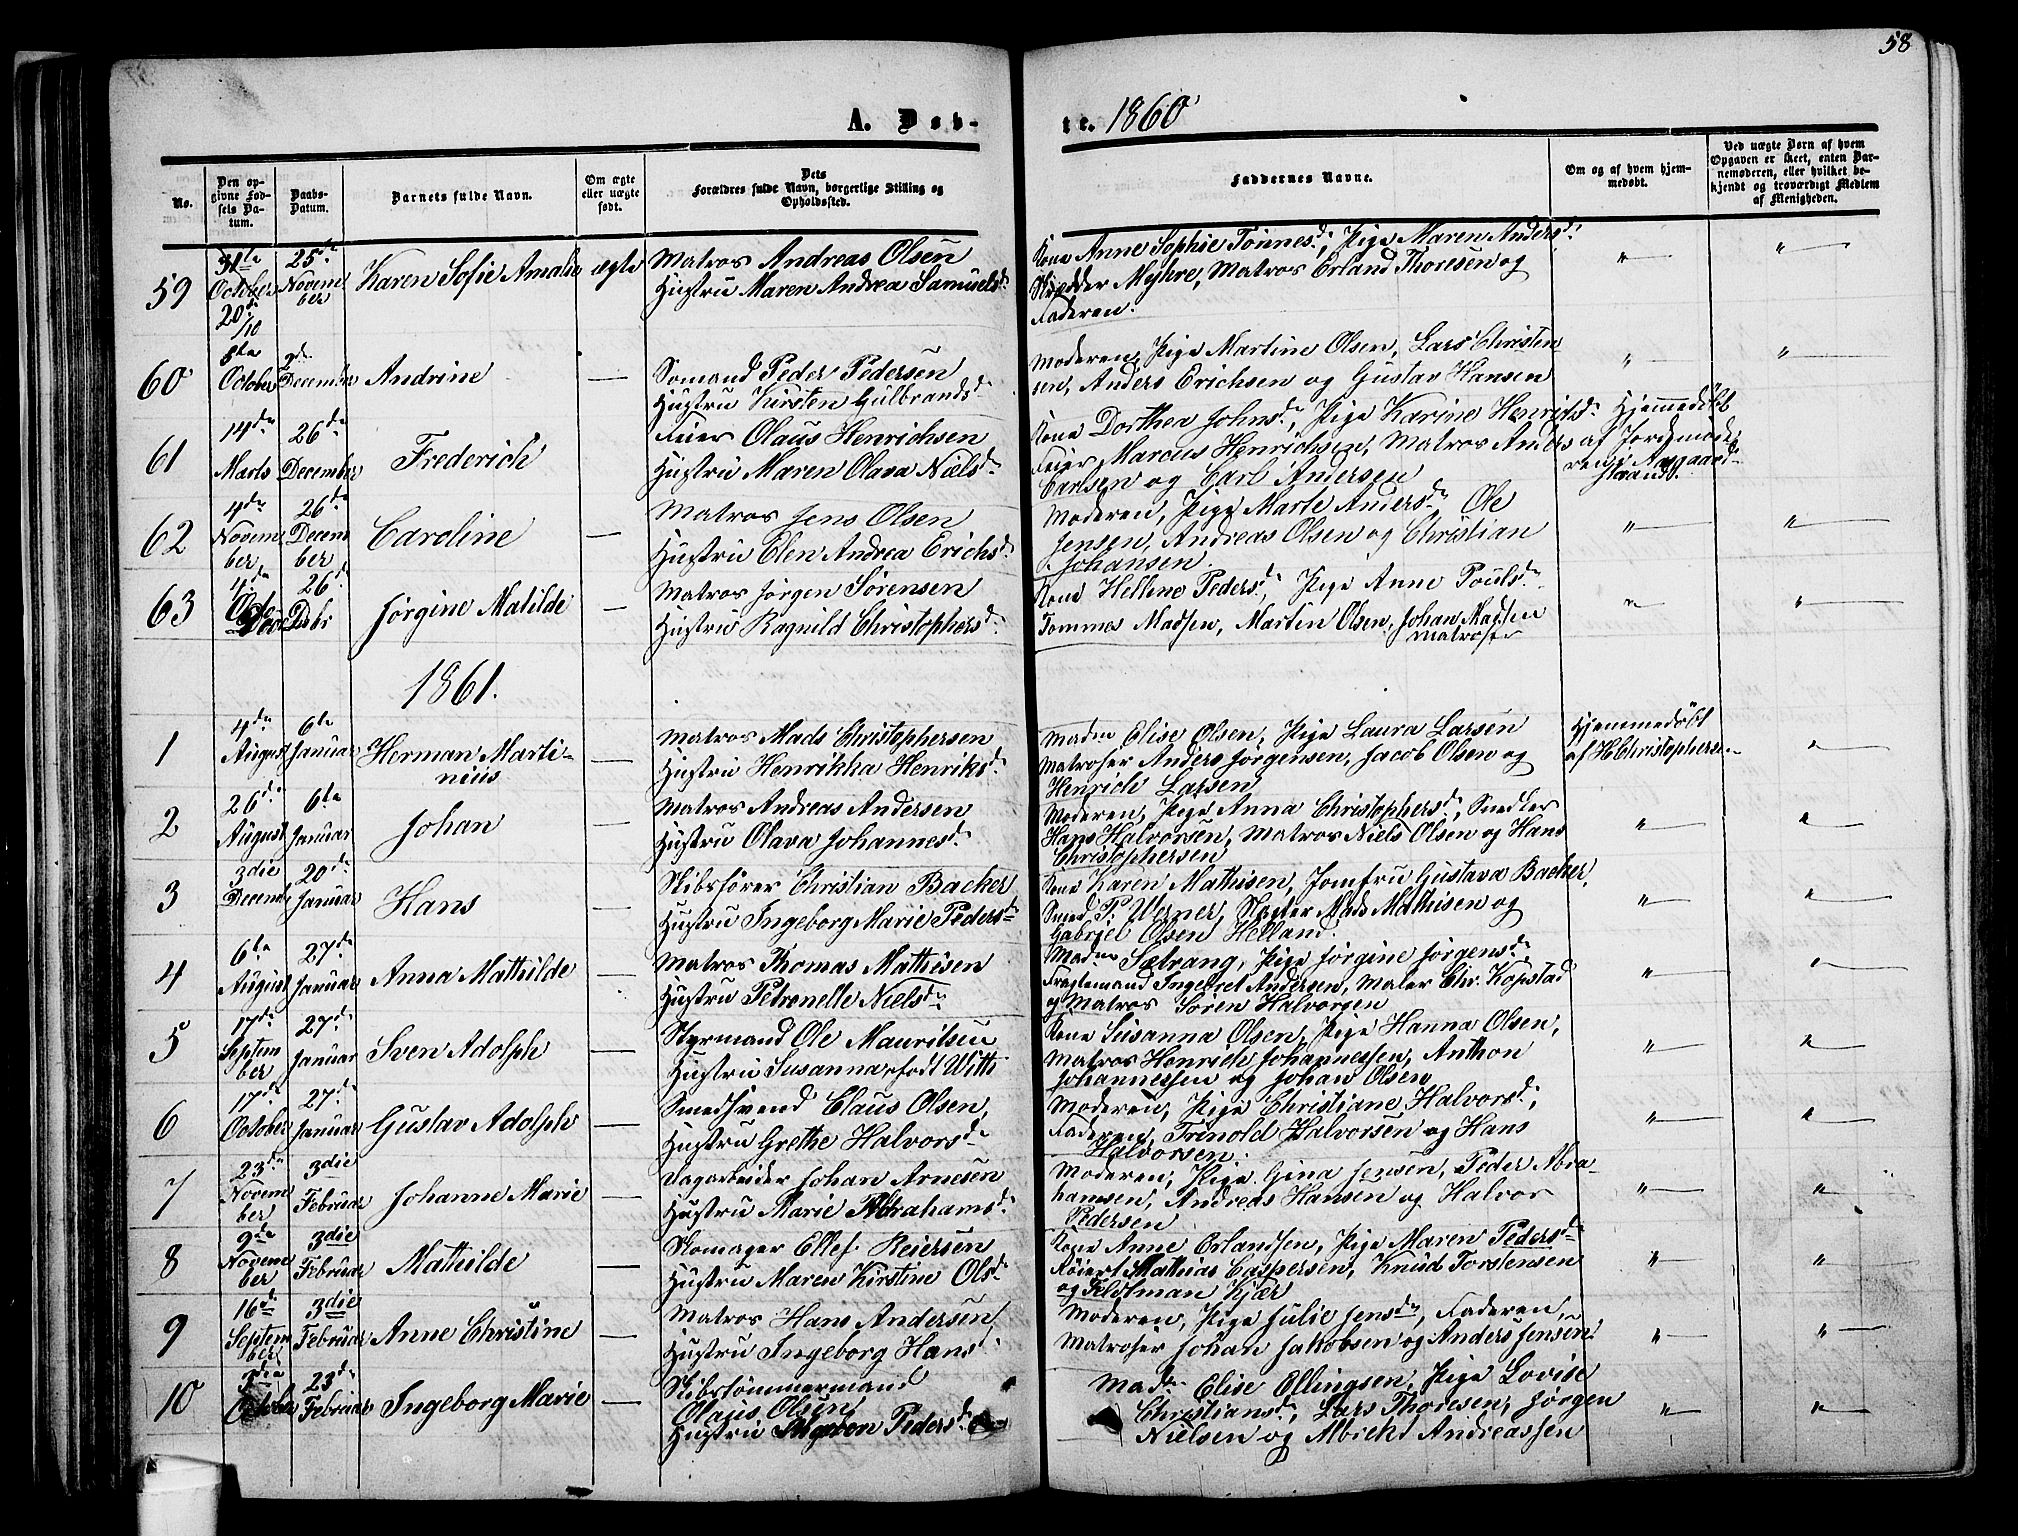 58
A. Døb-
te. 1860
No.
Den op-
givne Fød-
sels Da-
tum.
Daabs-
Datum.
Barnets fulde Navn.
Om ægte
eller uægte
født.
Dets
Forældres fulde Navn, borgerlige Stilling og
Opholdssted.
Faddernes Navne.
Om og af hvem hjem-
medøbt.
Ved uægte Børn af hvem
Opgaven er skeet, enten Bar-
nemoderen, eller hvilket be-
kjendt og troværdigt Medlem
af Menigheden.
59
31te
October
20de/10
25de
Novem
ber
Karen Sofie Amalie
ægte
Matros Andreas Olsen
Hustru Maren Andrea Samuelsd.
Kone Anne Sophie Tönnesd., Pige Maren Andersd.
Skrædder Myhre, Matros Erland Thoresen og
Faderen.
"
"
60
8te
October
2de
December
Andrine
—
Sömand Peder Pedersen
Hustru Kirsten Gulbrandsd.
Moderen, Pige Martine Olsen, Lars Christen
sen, Anders Erichsen og Gustav Hansen
"
"
61
14de
Marts
26de
December
Frederich
Feier Olaus Henrichsen
Hustru Maren Olava Nielsd.
Kone Dorthea Johnsd., Pige Karine Henriksd.
Feier Marcus Henrichsen, Matros Anders
Carlsen og Carl Andersen
Hjemmedöbt
af Jordemode
ren i Aasgaard-
strand.
62
4de
Novem
ber
26de
Decem
ber
Caroline
—
Matros Jens Olsen
Hustru Elen Andrea Erichsd.
Moderen, Pige Marte Andersd., Ole
Jensen, Andreas Olsen og Christian
Johansen.
"
"
63
4de
26de
Decbr
Jørgine Matilde
—
Matros Jørgen Sørensen
Hustru Ragnild Christophersd.
Kone Helline Pedersd., Pige Anne Poulsd.
Tommes Madsen, Martin Olsen, Johan Madsen
Matroser
"
"
1861.
1
4de
August
6te
Januar
Herman Marti-
nius
—
Matros Mads Christophersen
Hustru Henrikka Henriksd.
Madm Elise Olsen, Pige Laura Larsen
Matroser Anders Jørgensen, Jacob Olsen og
Henrich Larsen
Hjemmedöbt
af H Christophersen
"
2
26de
August
6te
Januar
Johan
—
Matros Andreas Andersen
Hustru Olava Johannesd.
Moderen, Pige Anna Christophersd., Snedker
Hans Halvorsen, Matros Niels Olsen og Hans
Christophersen
"
"
3
3die
Decemb
20de
Januar
Hans
—
Skibsfører Christian Backer
Hustru Ingeborg Marie Pedersd.
Kone Karen Mathisen, Jomfru Gustava Backer,
Smed P. Werner, Slagter Mads Mathisen og
Gabriel Olsen Helland.
"
"
4
6te
August
27de
Januar
Anna Mathilde
—
Matros Thomas Mathisen
Hustru Petronelle Nielsd.
Madme Sætrang, Pige Jørgine Jørgensd.
Fragtemand Ingebret Andersen, Maler Chr. Kopstad
og Matros Sören Halvorsen
"
"
5
17de
Septem
ber
27de
Januar
Sven Adolph
—
Styrmand Ole Mauritsen
Hustru Susanna, født Witt
Kone Susanna Olsen, Pige Hanna Olsen,
Matros Henrich Johannessen, Anthon
Johannessen og Johan Olsen
"
"
6
17de
October
27de
Januar
Gustav Adolph
—
Smedsvend Claus Olsen,
Hustru Grethe Halvorsd.
Moderen, Pige Christiane Halvorsd.,
Faderen, Trinold Halvorsen og Hans
Halvorsen.
"
"
7
23de
Novem
ber
3die
Februar
Johanne Marie
—
Dagarbeider Johan Arnesen
Hustru Marie Abrahamsd.
Moderen, Pige Gina Jensen, Peder Abra-
hamsen, Andreas Hansen og Halvor
Pedersen
"
"
8
9de
Novem
ber
3die
Februar
Mathilde
—
Skomager Ellef Reiersen
Hustru Maren Kirstine Olsd.
Kone Anne Erlandsen, Pige Maren Pedersd.
Mathias Caspersen, Knud Torstensen
og Feldtman Kjær
"
"
9
16de
Septem
ber
3die
Februar
Anne Christine
—
Matros Hans Andersen,
Hustru Ingeborg Hansd.
Moderen, Pige Julie Jensd., Faderen,
Matroser Johan Jakobsen og Anders Jensen
"
"
10
23de
Februar
Ingeborg Marie
—
Skibstømmermand
Olaus Olsen,
Hustru Ingebor Pedersd.
Madm. Elise Ellingsen, Pige Lovise
Christiansd., Lars Thoresen, Jørgen
Nielsen og Albrekt Andreassen
"
"